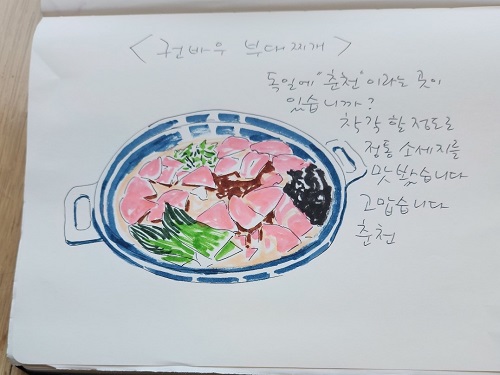 <권바우 부대찌개>
독일에 "춘천"이라는 곳이
있습니까?
착각 할 정도로
정통 소세지를
맛 봤습니다
고맙습니다
춘천